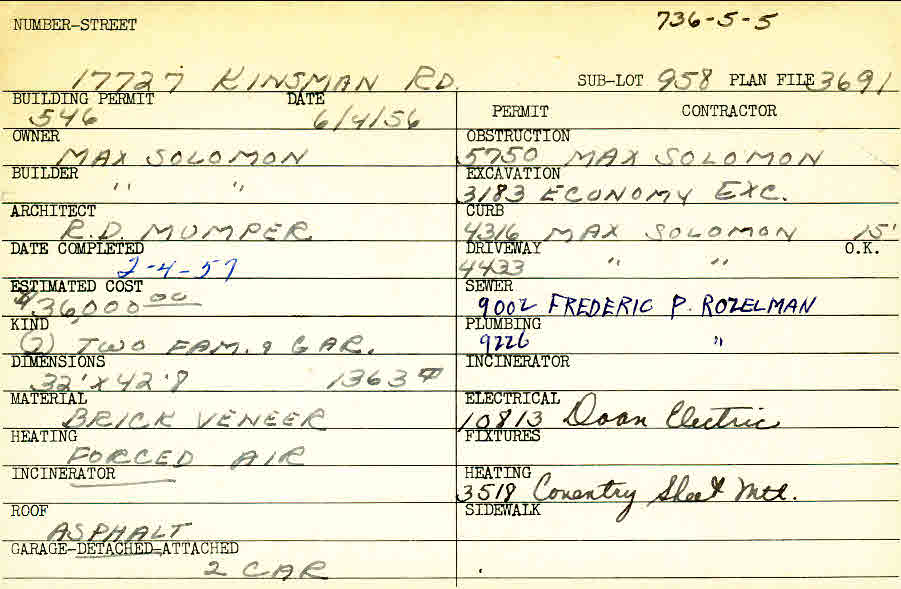 736-5-5
NUMBER-STREET
17727 KINSMAN RD. SUB-LOT 958 PLAN FILE 3691
BUILDING PERMIT DATE
546 6/4/56
OWNER
MAX SOLOMON
BUILDER
" "
ARCHITECT
R.D. MUMPER
DATE COMPLETED
2-4-57
ESTIMATED COST
$36,000.00
KIND
(2) TWO FAM. & GAR.
DIMENSIONS
32' x 42'8 1363 #
MATERIAL
BRICK VENEER
HEATING
FORCED AIR
INCINERATOR
ROOF
ASPHALT
GARAGE-DETACHED-ATTACHED
2 CAR
PERMIT CONTRACTOR
OBSTRUCTION
5750 MAX SOLOMON
EXCAVATION
3183 ECONOMY EXC.
CURB
4316 MAX SOLOMON 15'
DRIVEWAY O.K.
4433 " "
SEWER
9002 FREDERIC P. ROZELMAN
PLUMBING
9226 "
INCINERATOR
ELECTRICAL
10813 Doan Electric
FIXTURES
HEATING
3518 Coventry Sheet Mtl.
SIDEWALK